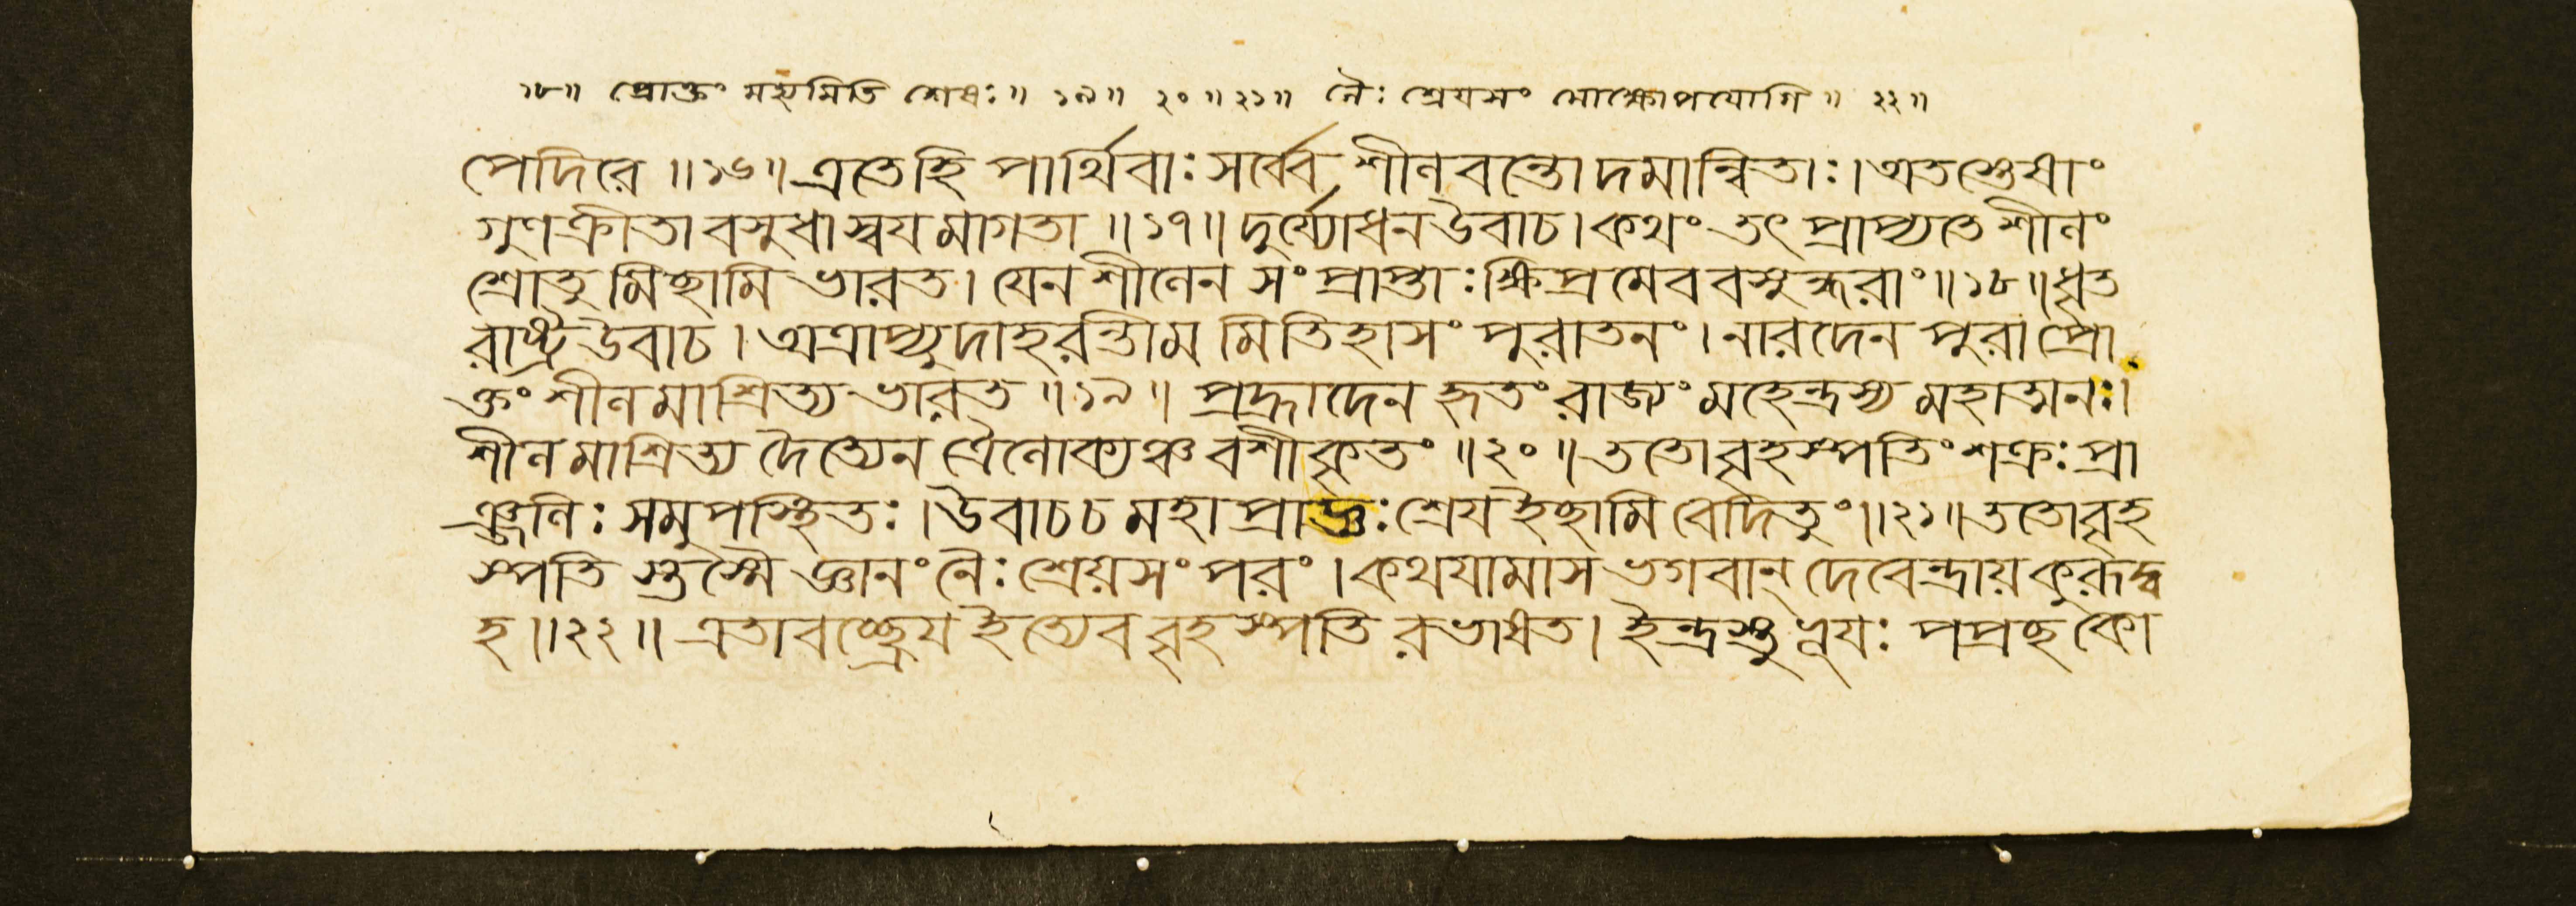 ১৮॥ প্রোক্তং মহ্যমিতি শেষঃ॥ ১৯॥ ২০॥২১॥ নৈঃশ্রেযসং মোক্ষোপযোগি॥ ২২॥
পেদিরে॥১৬॥এতেহি পার্থিবাঃ সর্ব্বে শীলবন্তোদমান্বিতাঃ।অতস্তেষাং
গুণক্রীতাবসুধাস্বযমাগতা॥১৭॥দুর্য্যোধনউবাচ।কথং তৎ প্রাপ্যতে শীলং
শ্রোতুমিছামি ভারত। যেনশীলেন সংপ্রাপ্তাঃক্ষিপ্রমেববসুন্ধরাং॥১৮॥ধৃত
রাষ্ট্রউবাচ।অত্রাপ্যুদাহরন্তীমমিতিহাসং পুরাতনং।নারদেন পুরাপ্রো
ক্তং শীলমাশ্রিত্য ভারত॥১৯॥ প্রহ্লাদেন হৃতং রাজ্যং মহেন্দ্রস্য মহাত্মনঃ।
শীলমাশ্রিত্য দৈত্যেন ত্রৈলোক্যঞ্চবশীকৃতং॥২০॥ততোবৃহস্পতিংশক্রঃ প্রা
ঞ্জলিঃ সমুপস্থিতঃ।উবাচচ মহাপ্রাজ্ঞঃশ্রেযইছামি বেদিতুং॥২১॥ততোবৃহ
স্পতিস্তস্মৈ জ্ঞানং নৈঃশ্রেয়সং পরং।কথযামাস ভগবান্ দেবেন্দ্রায়কুরূদ্ব
হ॥২২॥এতাবচ্ছ্রেযইত্যেব বৃহস্পতিরভাষত।ইন্দ্রস্তুভূযঃ পপ্রছকো